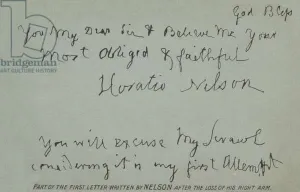 God Bless
You My Dear Sir & Believe Me Your
Most Obliged & faithful
Horatio Nelson
You will excuse my Scrawl
considering it is my first Attempt
PART OF THE FIRST LETTER WRITTEN BY NELSON AFTER THE LOSS OF HIS RIGHT ARM.
bridgeman
images